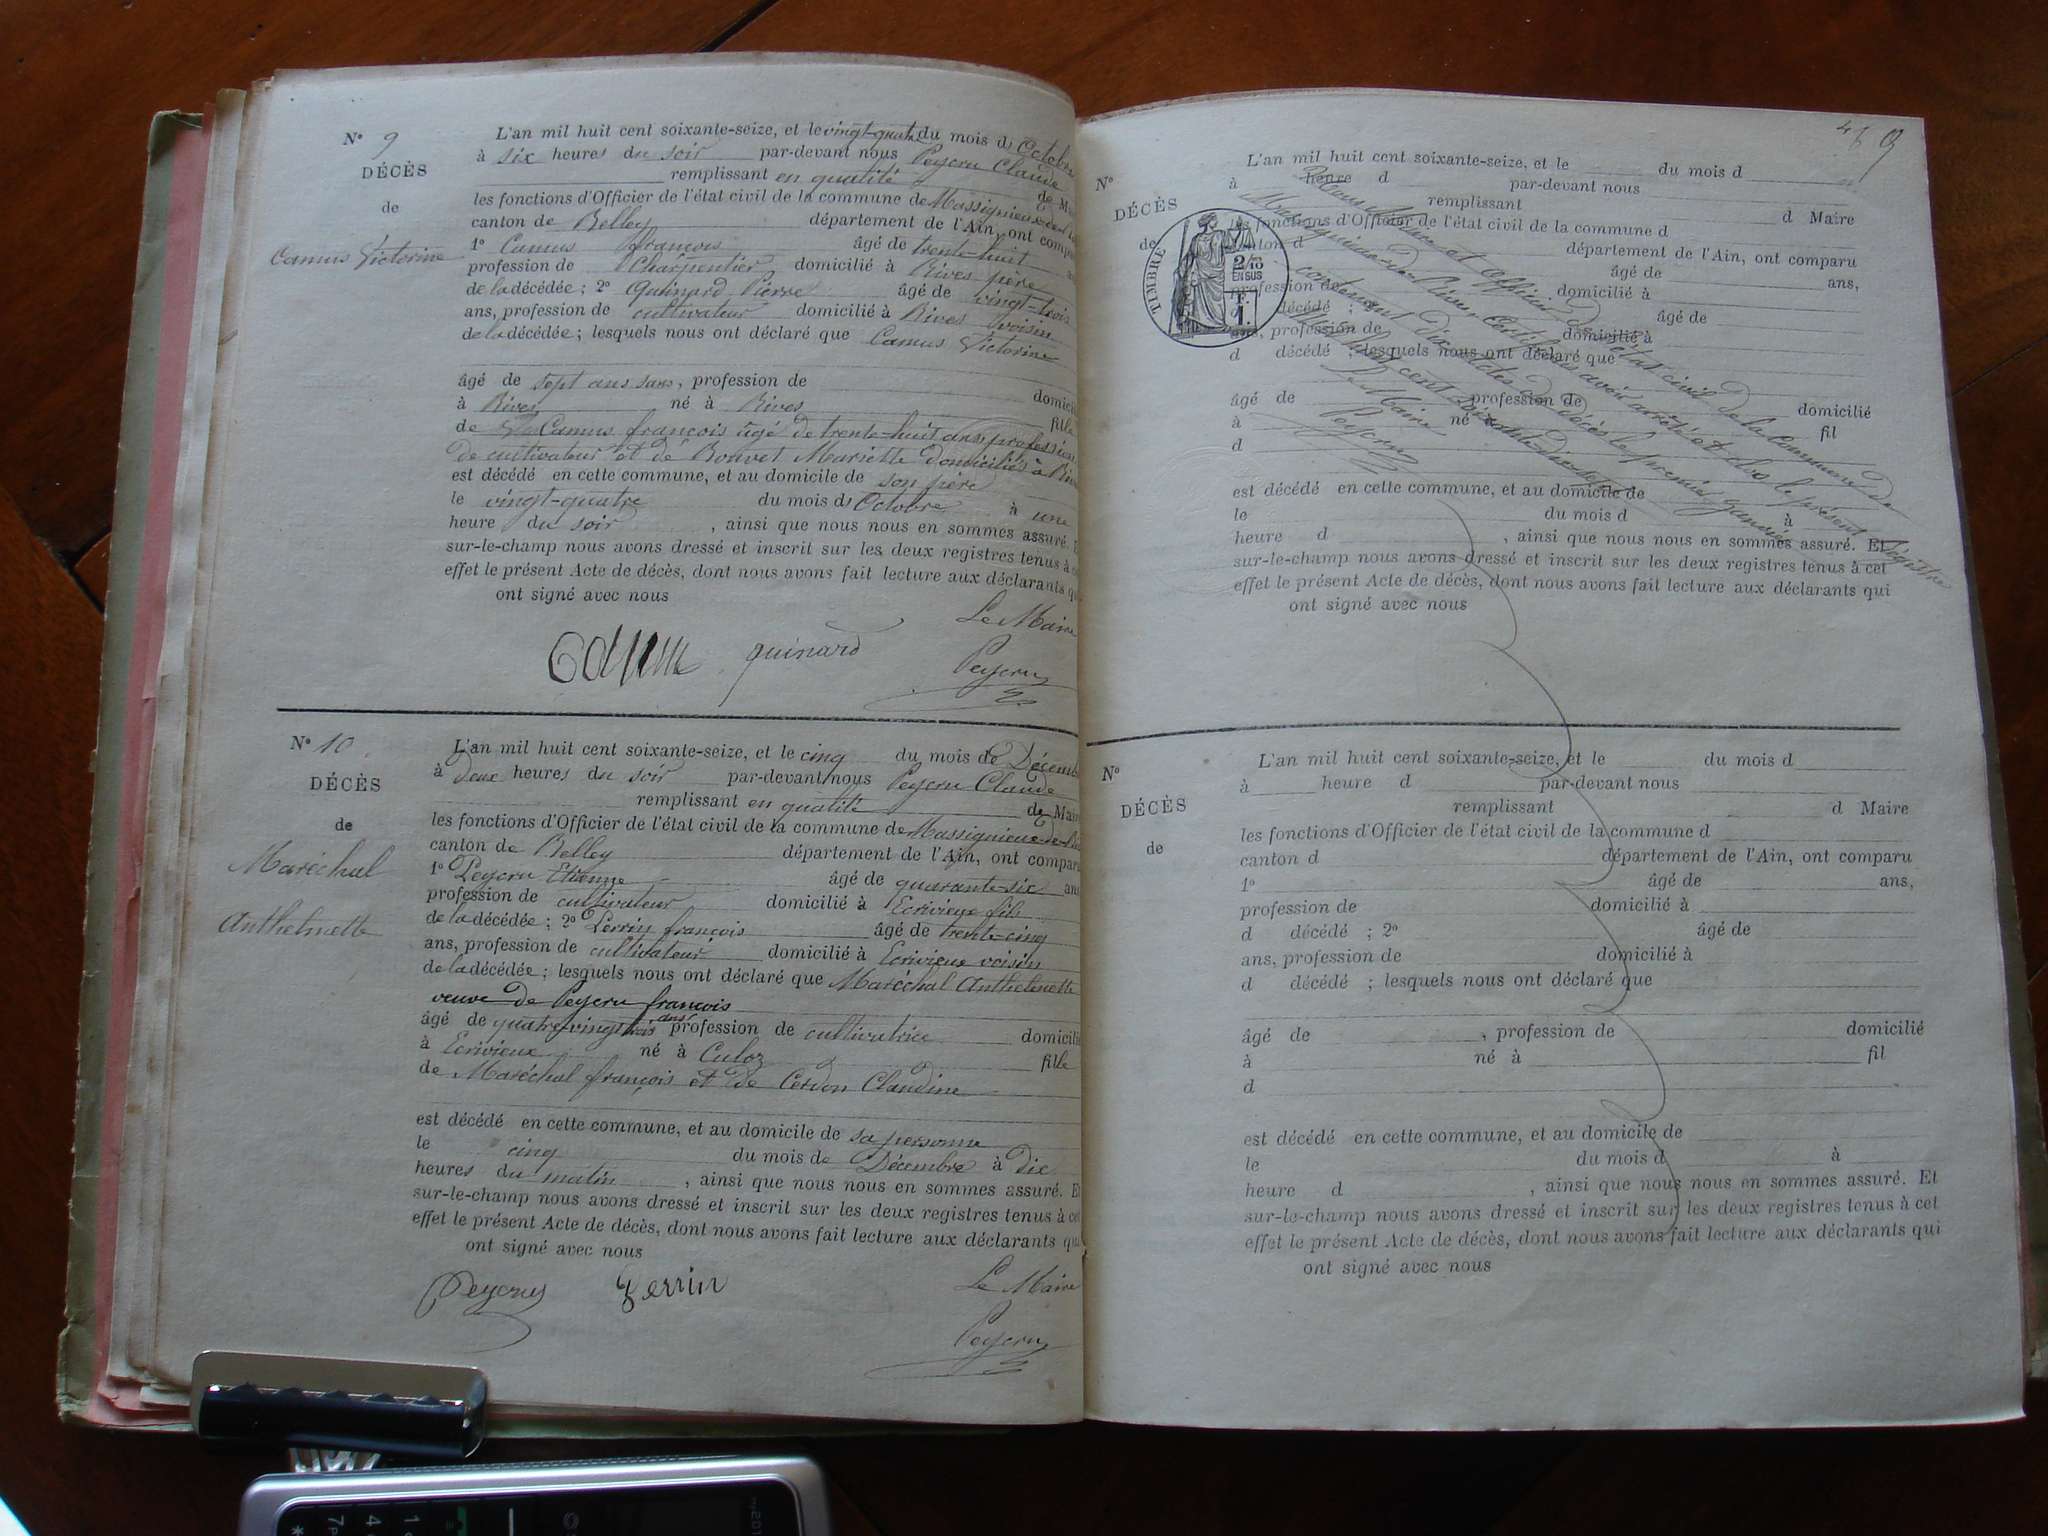 N° 9
DÉCÈS
de
Camus Victorine
L'an mil huit cent soixante-seize, et le vingt-quatre du mois d'Octobre
à six heures du soir par-devant nous Peycru Claude
remplissant en qualité de Maire
les fonctions d'Officier de l'état civil de la commune de Massignieu-de-Rives
canton de Belley département de l'Ain, ont comparu
1° Camus françois âgé de trente-huit ans
profession de Charpentier domicilié à Rives père
de la décédée ; 2° Quinard Pierre âgé de vingt-trois
ans, profession de cultivateur domicilié à Rives voisin
de la décédée ; lesquels nous ont déclaré que Camus Victorine
âgé de sept ans sans, profession de domicilié
à Rives né à Rives fille
de Camus françois âgé de trente-huit ans profession
de cultivateur et de Bonvet Mariette domiciliés à Rives
est décédé en cette commune, et au domicile de son père
le vingt-quatre du mois d'Octobre à une
heure du soir, ainsi que nous nous en sommes assuré. Et
sur-le-champ nous avons dressé et inscrit sur les deux registres tenus à cet
effet le présent Acte de décès, dont nous avons fait lecture aux déclarants qui
ont signé avec nous
Le Maire
quinard
Peycru
N° 10
DÉCÈS
de
Maréchal
Anthelmette
L'an mil huit cent soixante-seize, et le cinq du mois de Décembre
à deux heures du soir par-devant nous Peycru Claude
remplissant en qualité de Maire
les fonctions d'Officier de l'état civil de la commune de Massignieu-de-Rives
canton de Belley département de l'Ain, ont comparu
1° Peycru Etienne âgé de quarante-six ans
profession de cultivateur domicilié à Ecrivieux fils
de la décédée ; 2° Perrin françois âgé de trente-cinq
ans, profession de cultivateur domicilié à Ecrivieux voisin
de la décédée ; lesquels nous ont déclaré que Maréchal Anthelmette
veuve de Peycru françois
âgé de quatre-vingt trois ans profession de cultivatrice domicilié
à Ecrivieux né à Culoz fille
de Maréchal françois et de Cerdon Claudine
est décédé en cette commune, et au domicile de sa personne
le cinq du mois de Décembre à dix
heures du matin, ainsi que nous nous en sommes assuré. Et
sur-le-champ nous avons dressé et inscrit sur les deux registres tenus à cet
effet le présent Acte de décès, dont nous avons fait lecture aux déclarants qui
ont signé avec nous
Peycru Perrin Le Maire
Peycru
9
N°
DÉCÈS
de
TIMBRE
2/10
EN SUS
L'an mil huit cent soixante-seize, et le du mois d
à heure d par-devant nous
remplissant d Maire
les fonctions d'Officier de l'état civil de la commune d
canton d département de l'Ain, ont comparu
âgé de ans,
profession de domicilié à
décédé ; âgé de
ans, profession de domicilié à
d décédé ; lesquels nous ont déclaré que
âgé de profession de domicilié
à né à fil
d
est décédé en cette commune, et au domicile de
le du mois d à
heure d , ainsi que nous nous en sommes assuré. Et
sur-le-champ nous avons dressé et inscrit sur les deux registres tenus à cet
effet le présent Acte de décès, dont nous avons fait lecture aux déclarants qui
ont signé avec nous
Nous Maire et officier de l'état civil de la Commune de
Massignieu-de-Rives Certifions avoir arrêté et clos le présent Régistre
contenant dix actes de décès le premier janvier
mil huit cent soixante-dix-sept
Le Maire
Peycru
N°
DÉCÈS
de
L'an mil huit cent soixante-seize, et le du mois d
à heure d par-devant nous
remplissant d Maire
les fonctions d'Officier de l'état civil de la commune d
canton d département de l'Ain, ont comparu
1° âgé de ans,
profession de domicilié à
d décédé ; 2° âgé de
ans, profession de domicilié à
d décédé ; lesquels nous ont déclaré que
âgé de , profession de domicilié
à né à fil
d
est décédé en cette commune, et au domicile de
le du mois d à
heure d , ainsi que nous nous en sommes assuré. Et
sur-le-champ nous avons dressé et inscrit sur les deux registres tenus à cet
effet le présent Acte de décès, dont nous avons fait lecture aux déclarants qui
ont signé avec nous